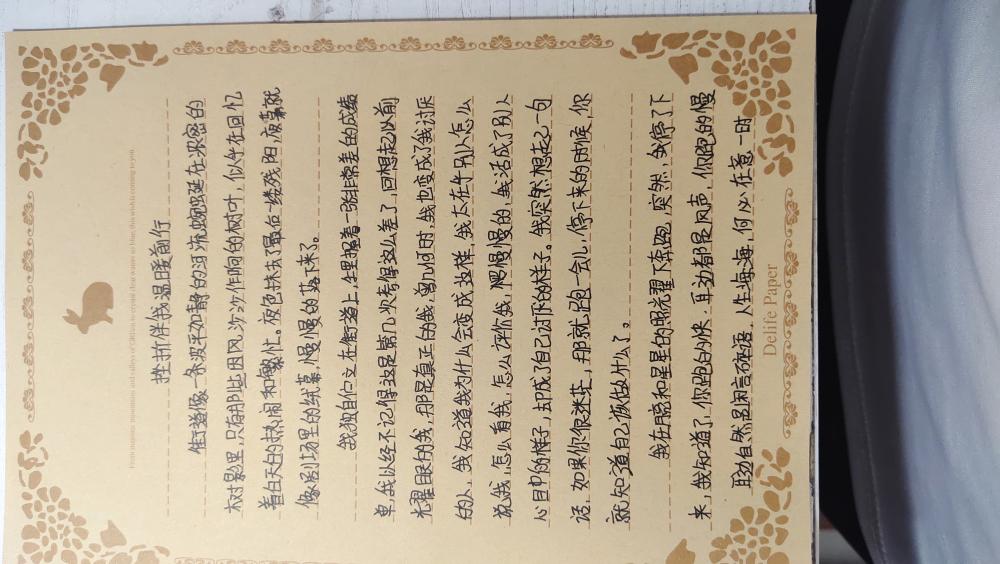 From majestic mountains and valleys of green to crystal clear waters so blue, this wish is coming to you.
挫折伴我温暖前行
街道像一条波平如静的河流,蜿蜒在浓密的
树影里,只有那些因风沙沙作响的树叶,似乎在回忆
着白天的热闹和繁忙。夜色抹去了最后一缕残阳,夜幕就
像剧场里的绒幕,慢慢的落下来了。
我独自伫立在街道上,手里握着一张非常差的成绩
单,我以经不记得这是第几次考得这么差了,回想起以前
光耀眼的我,那是真正的我,曾几何时,我也变成了我讨厌
的人,我知道我为什么会变成这样,我太在乎别人怎么
说我,怎么看我,怎么评价我,慢慢的,我活成了别人
心目中的样子,却成了自己讨厌的样子。我突然想起了一句
话,如果你很迷茫,那就跑一会儿,停下来的时候,你
就知道自己该做什么了。
我在月亮和星星的照耀下奔跑,突然,我停了下
来,我知道了,你跑的快,耳边都是风声,你跑的慢
耳边自然是闲言碎语,人生海海,何必在意一时
Delife Paper